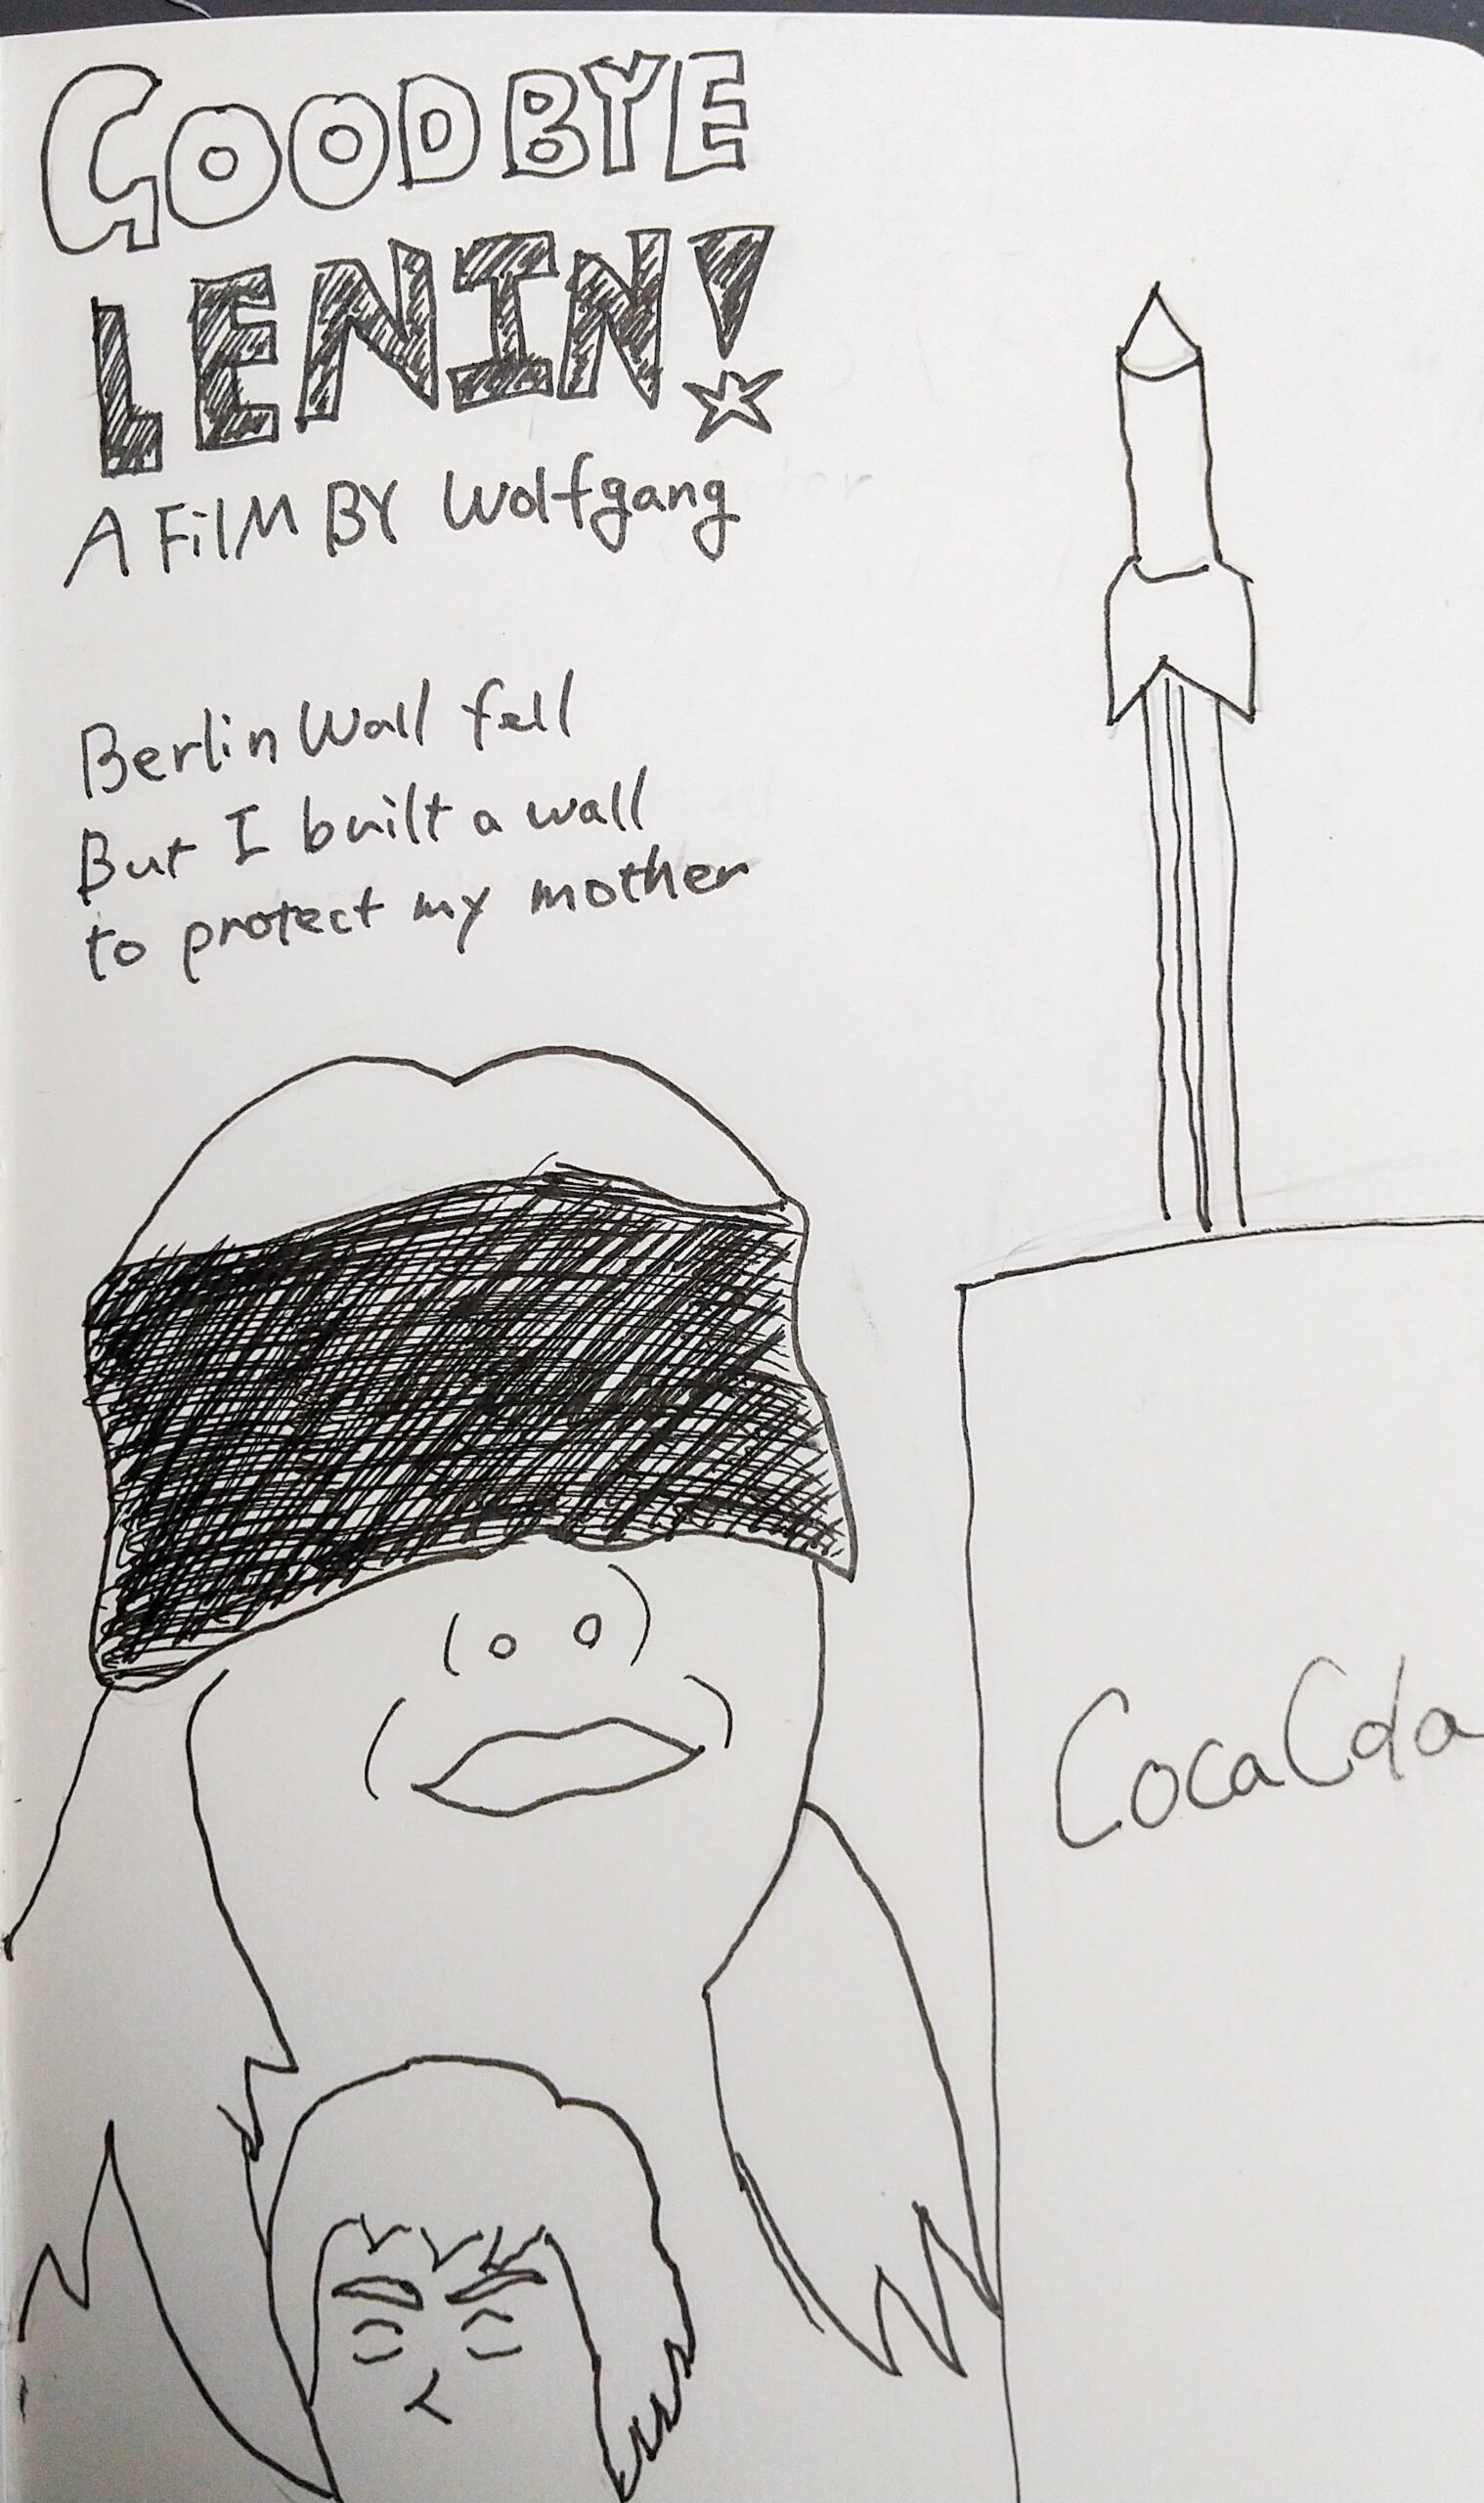 GOODBYE
LENIN!
A FilM BY Wolfgang
Berlin Wall fell
But I built a wall
to protect my mother
CocaCola